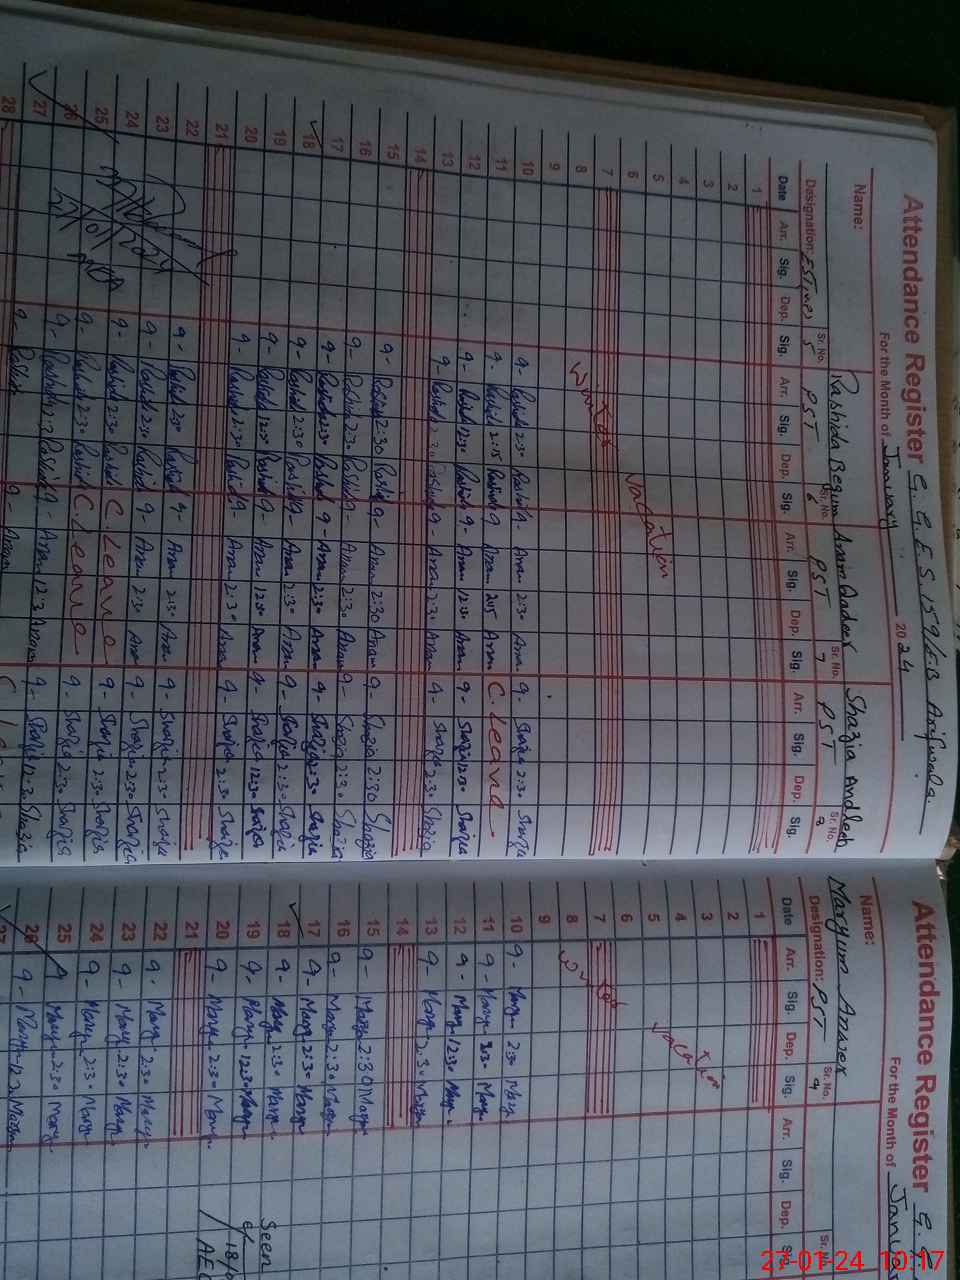 Attendance Register G. G. E. S 159/E.B Arifwala.
For the Month of January 2024
Name: Rashida Begum Anam Qadeer Shazia Andleeb
Designation: Sr. No. 5 PST Sr. No. 6 PST Sr. No. 7 PST Sr. No. 8
Date Arr. Sig. Dep. Sig. Arr. Sig. Dep. Sig. Arr. Sig. Dep. Sig. Arr. Sig. Dep. Sig.
1
2
3
4
5
6 Vacation
7
8 Winter
9
10 9- Rashid 2:30 Rashid 9- Anam 2:30 Anam 9- Shazia 2:30 Shazia
11 9- Rashid 2:15 Rashid 9 Anam 2:15 Anam C. Leave
12 9- Rashid 12:30 Rashid 9- Anam 12:30 Anam 9- Shazia 12:30 Shazia
13 9- Rashid 2:30 Rashid 9- Anam 2:30 Anam 9- Shazia 2:30 Shazia
14
15 9- Rashid 2:30 Rashid 9- Anam 2:30 Anam 9- Shazia 2:30 Shazia
16 9- Rashid 2:30 Rashid 9- Anam 2:30 Anam 9- Shazia 2:30 Shazia
17 9- Rashid 2:30 Rashid 9- Anam 2:30 Anam 9- Shazia 2:30 Shazia
18 9- Rashid 2:30 Rashid 9- Anam 2:30 Anam 9- Shazia 2:30 Shazia
19 9- Rashid 12:30 Rashid 9- Anam 12:30 Anam 9- Shazia 12:30 Shazia
20 9- Rashid 2:30 Rashid 9- Anam 2:30 Anam 9- Shazia 2:30 Shazia
21
22 9- Rashid 2:30 Rashid 9- Anam 2:30 Anam 9- Shazia 2:30 Shazia
23 9- Rashid 2:30 Rashid 9- Anam 2:30 Anam 9- Shazia 2:30 Shazia
24 9- Rashid 2:30 Rashid C. Leave 9- Shazia 2:30 Shazia
25 9- Rashid 2:30 Rashid C. Leave 9- Shazia 2:30 Shazia
26 9- Rashid 12:30 Rashid 9- Anam 12:30 Anam 9- Shazia 12:30 Shazia
27 9- Rashid 9- Anam
28
Attendance Register G. G
For the Month of Janu
Name: Maryum Anwer
Designation: PST Sr. No. 9 Sr. No.
Date Arr. Sig. Dep. Sig. Arr. Sig. Dep. Sig.
1
2
3
4
5 Vacation
6
7
8 Winter
9
10 9- Marya 2:30 Marya
11 9- Marya Marya
12 9- Marya 12:30 Marya
13 9- Marya 2:30 Marya
14
15 9- Marya 2:30 Marya
16 9- Marya 2:30 Marya
17 9- Marya 2:30 Marya
18 9- Marya 2:30 Marya
19 9- Marya 12:30 Marya Seen
20 9- Marya 2:30 Marya AEO
21
22 9- Marya 2:30 Marya
23 9- Marya 2:30 Marya
24 9- Marya 2:30 Marya
25 9 Marya 2:30 Marya
26 9- Marya 12:30 Marya
27
27-01-24 10:17